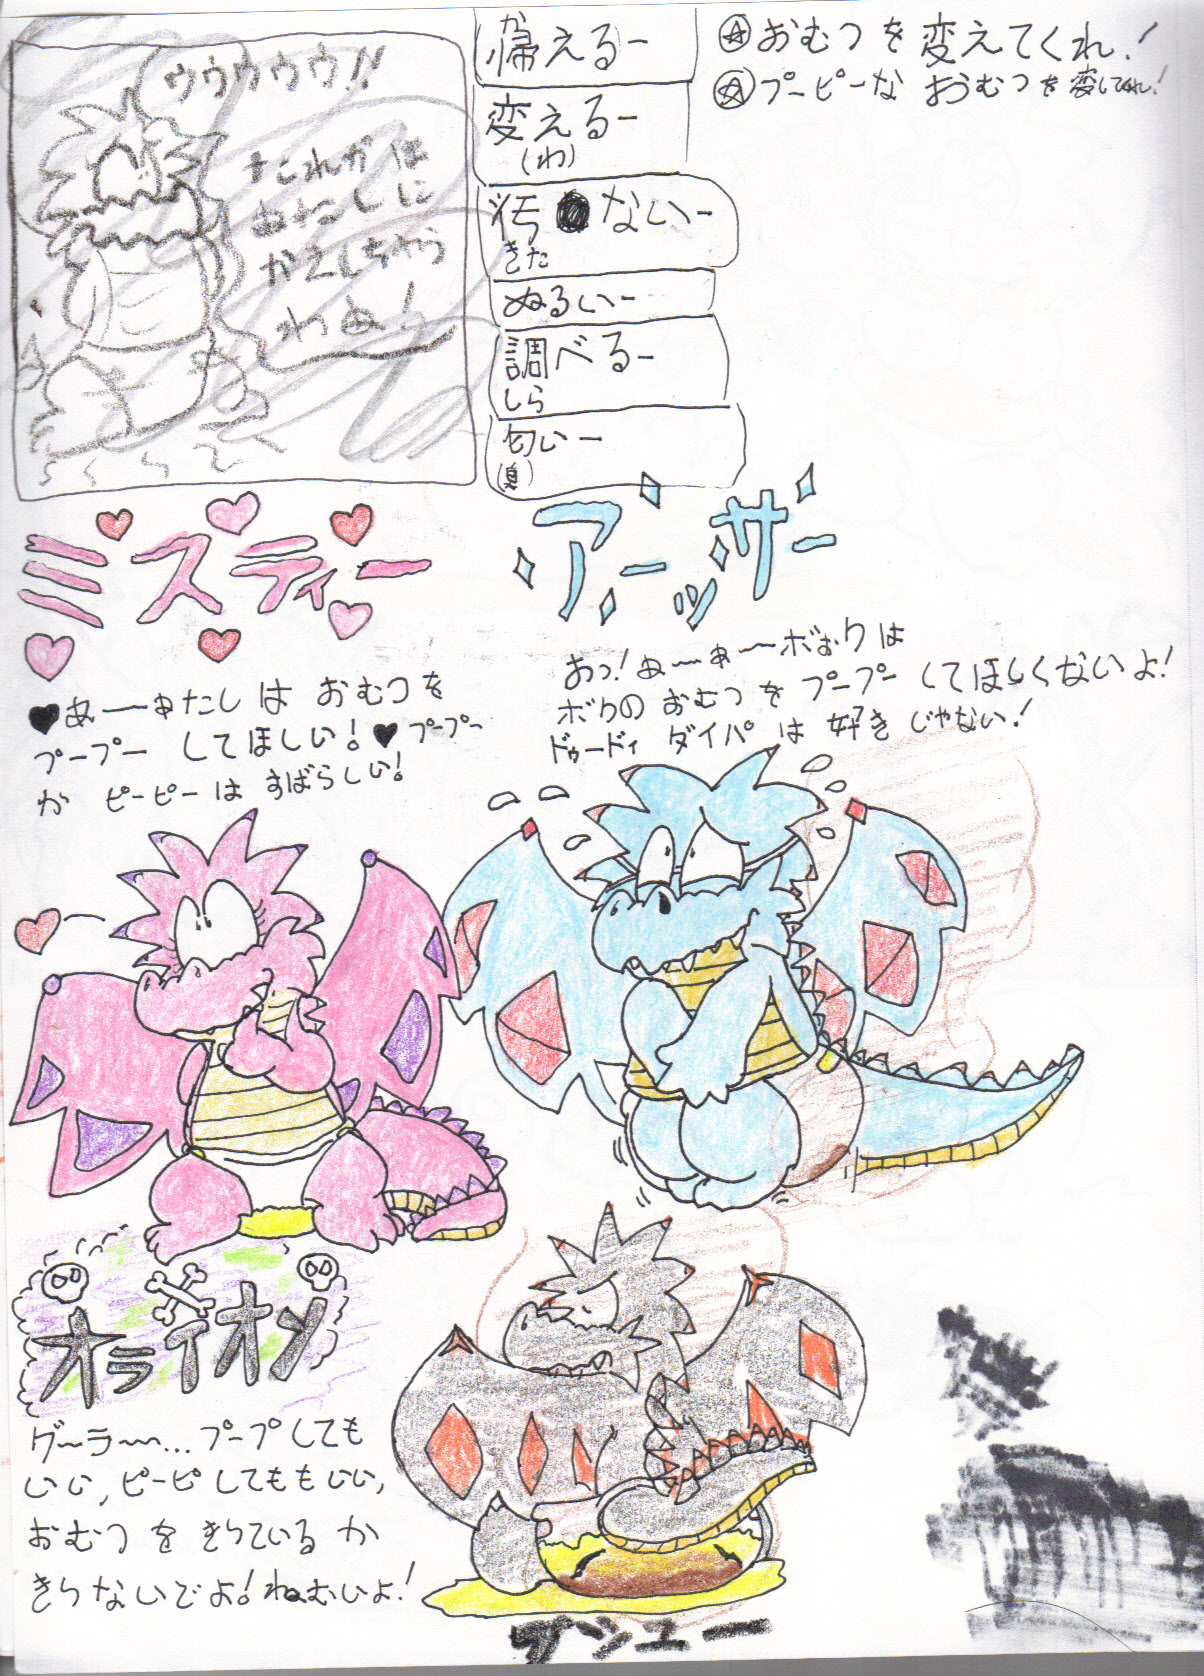 ウゥゥゥゥゥ!!
かえしちゃう
わぁ!
帰えるー
か
変えるー
(わ)
汚 ないー
きた
ぬるいー
調べるー
しら
匂いー
(臭)
おむつを変えてくれ!
プーピーな おうむつを変してくれ!
ミスティー
♥ぁ〜ぁたし は おむつを
プープー してほしい!♥プープー
か ピーピーは すばらしい!
アーッザー
おっ!ぁ〜ぁ〜ボぉクは
ボクの おむつを プープー してほしくないよ!
ドゥードィ ダイパは 好きじゃない!
オライオン
グーラ〜...プープしても
いい,ピーピしてももいい,
おむつを きっているか
きらないでよ!ねむいよ!
プシュー